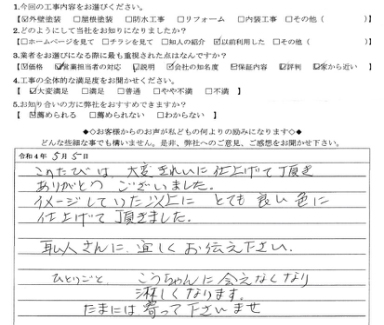 1.今回の工事内容をお選びください。
【 ☑外壁塗装 □屋根塗装 □防水工事 □リフォーム □内装工事 □その他（ ）】
2.どのようにして当社をお知りになりましたか？
【 □ホームページを見て □チラシを見て □知人の紹介 ☑以前利用した □その他（ ）】
3.業者をお選びになる際に最も重視された点はなんですか？
【 ☑価格 ☑営業担当者の対応 ☑説明 ☑会社の知名度 ☑保証内容 ☑評判 ☑家から近い 】
4.工事の全体的な満足度をお聞かせください。
【 ☑大変満足 □満足 □普通 □やや不満 □不満 】
5.お知り合いの方に弊社をおすすめできますか？
【 ☑薦められる □薦められない □わからない 】
◆◇お客様からのお声が私どもの何よりの励みになります◇◆
どんな些細な事でも構いません。是非、弊社へのご意見、ご感想をお聞かせ下さい。
令和4年 5月5日
このたびは 大変きれいに仕上げて頂き
ありがとう ございました。
イメージしていた以上に とても良い色に
仕上げて頂きました。
職人さんに 宜しくお伝え下さい。
ひとりごと、 こうちゃんに会えなくなり
淋しくなります。
たまには 寄って下さいませ